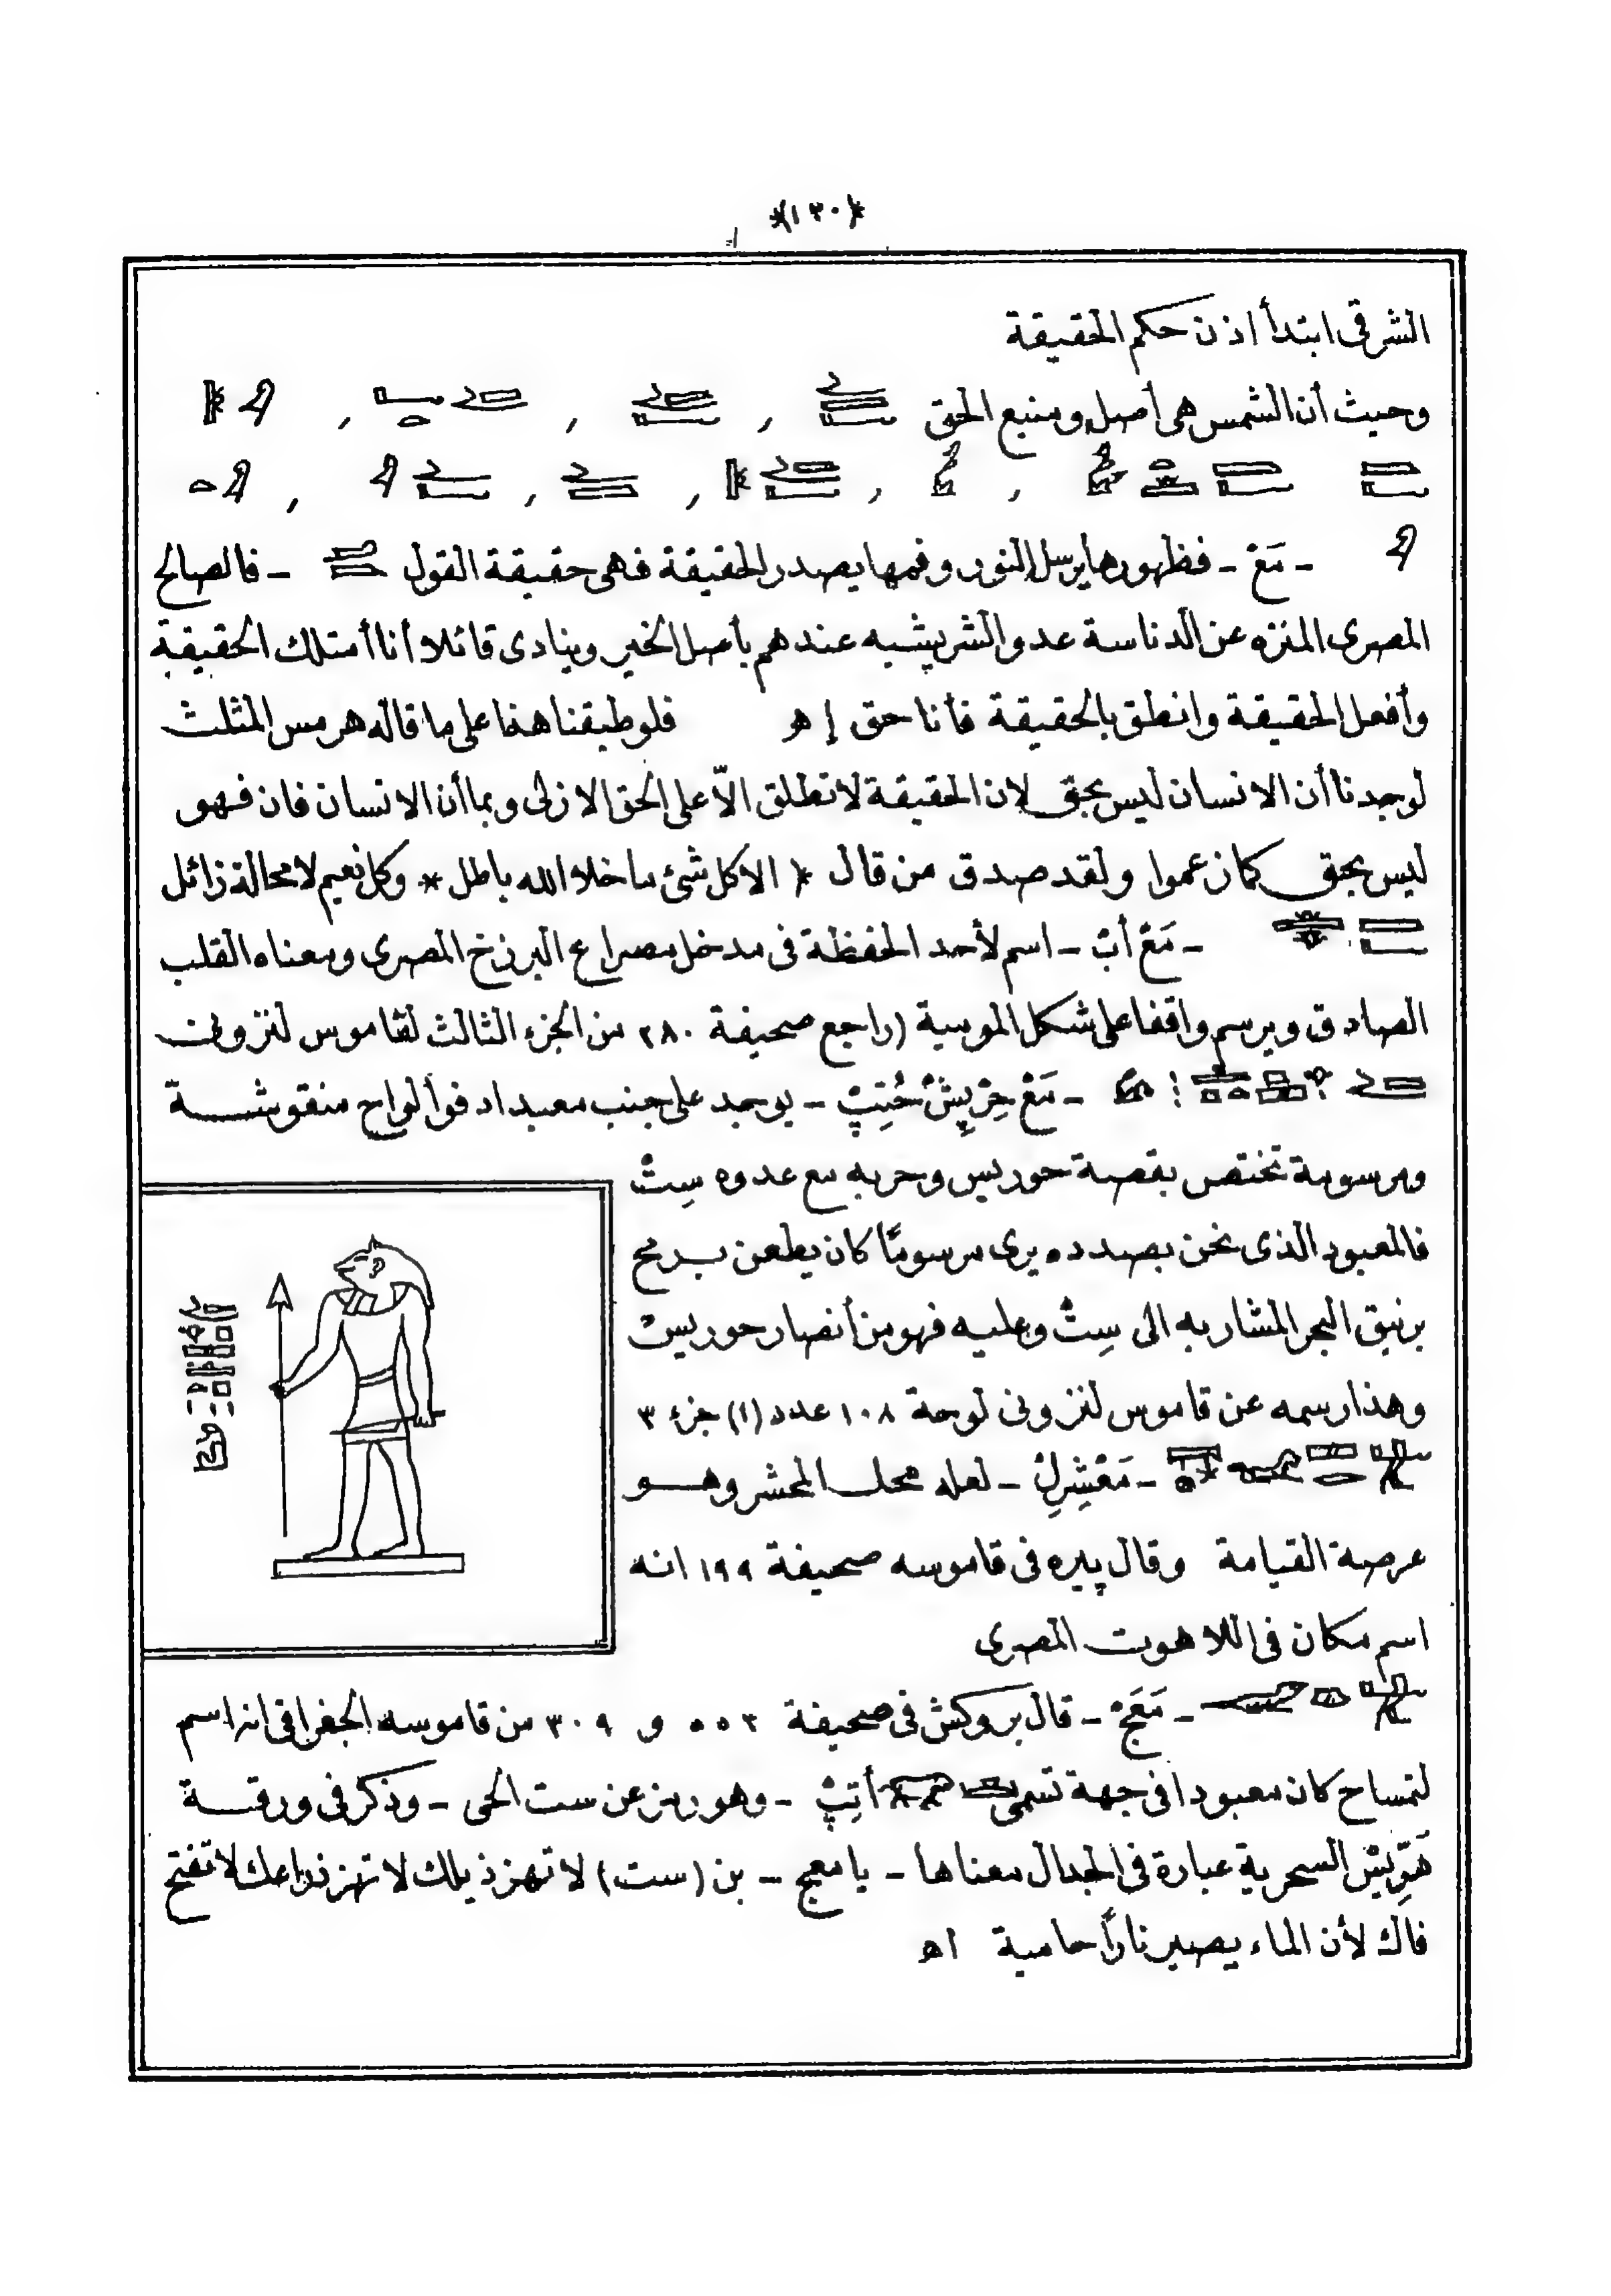 *(١٣٠)*
الشرقى ابتدأ اذن حكم الحقيقة
وحيث أن الشمس هى أصل ومنبع الحق
، ، ، ،
، ، ، ، ،
ـ مَعْ ـ فظهورها يرسل النور وفمها يصدر الحقيقة فهى حقيقة القول ـ فالصالح
المصرى المنزه عن الدناسة عدو الشر يشبه عندهم بأصل الخير وينادى قائلا أنا أمتلك الحقيقة
وأفعل الحقيقة وانطق بالحقيقة فأنا حق إ هـ فلو طبقنا هذا على ما قاله هرمس المثلث
لوجدنا أن الانسان ليس بحق لان الحقيقة لا تطلق الاّ على الحق الازلى وبما أن الانسان فان فهو
ليس بحق كما زعموا ولقد صدق من قال * الا كل شئ ما خلا الله باطل * وكل نعيم لا محالة زائل
ـ مَعْ أبْ ـ اسم لأحد الحفظة فى مدخل مصراع البرزخ المصرى ومعناه القلب
الصادق ويرسم واقفا على شكل الموميه (راجع صحيفة ٢٨٠ من الجزء الثالث لقاموس لنزونى
ـ مَعْ حِرْ پِشْ حُتِپْ ـ يوجد على جنب معبد ادفو ألواح منقوشة
ومرسومة تختص بقصة حوريس وحربه مع عدوه سِتْ
فالمعبود الذى نحن بصدده يرى مرسومًا كان يطعن برمح
برنيق البحر المشار به الى سِتْ وعليه فهو من أنصار حوريس
وهذا رسمه عن قاموس لنزونى لوحة ١٠٨ عدد (١) جزء ٣
ـ مَعْشِرِلْ ـ لعله محل المحشر وهو
عرصة القيامة وقال پيره فى قاموسه صحيفة ١٩٩ انه
اسم مكان فى اللاهوت المصرى
ـ مَعَجْ ـ قال بروكش فى صحيفة ٥٥٣ و ٣٠٩ من قاموسه الجغرافى انه اسم
لتمساح كان معبودا فى جهة تسمى أتِپْ ـ وهو رمز عن ست الحى ـ وذكر فى ورقة
هَرِّيسْ السحرية عبارة فى الجدال معناها ـ يا معج ـ بن (ست) لا تهز ذيلك لا تهز ذراعك لا تفتح
فاك لأن الماء يصير نارًا حامية اهـ